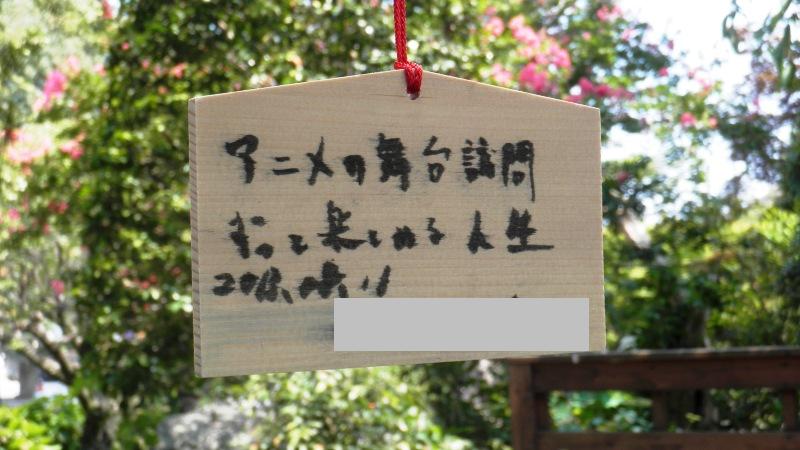 アニメの舞台訪問
ずっと楽しめる人生